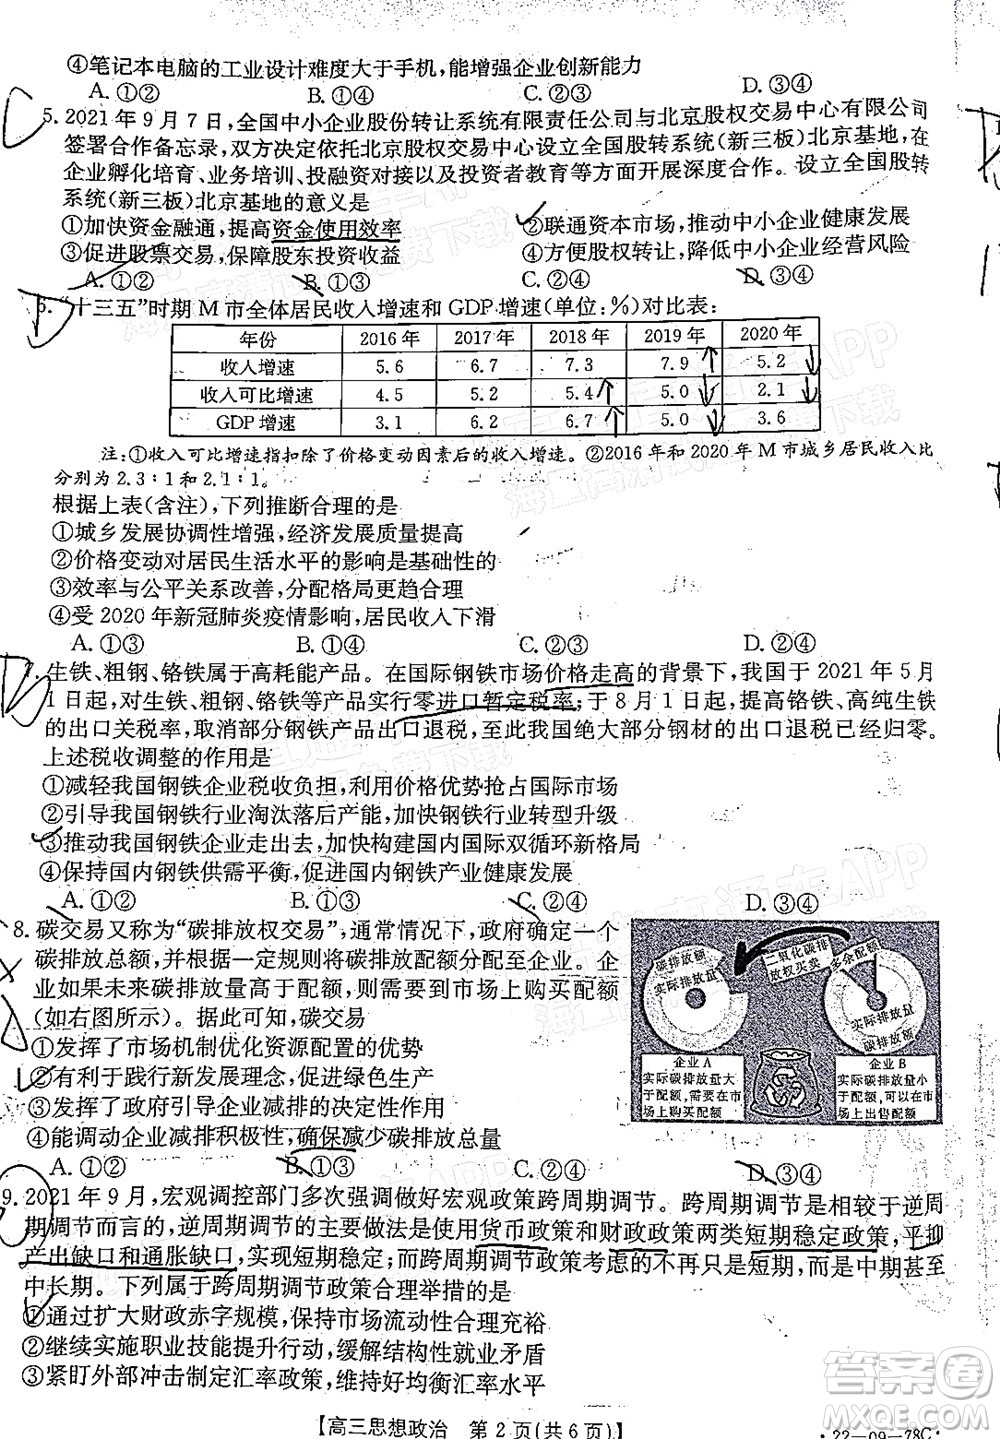 ④笔记本电脑的工业设计难度大于手机，能增强企业创新能力
A. ①② B. ①④ C. ②③ D. ③④
5. 2021年9月7日，全国中小企业股份转让系统有限责任公司与北京股权交易中心有限公司
签署合作备忘录，双方决定依托北京股权交易中心设立全国股转系统(新三板)北京基地，在
企业孵化培育、业务培训、投融资对接以及投资者教育等方面开展深度合作。设立全国股转
系统(新三板)北京基地的意义是
①加快资金融通，提高资金使用效率 ②联通资本市场，推动中小企业健康发展
③促进股票交易，保障股东投资收益 ④方便股权转让，降低中小企业经营风险
A. ①② B. ①③ C. ②④ D. ③④
6. “十三五”时期M市全体居民收入增速和GDP增速(单位：%)对比表：
年份 2016年 2017年 2018年 2019年 2020年
收入增速 5.6 6.7 7.3 7.9 5.2
收入可比增速 4.5 5.2 5.4 5.0 2.1
GDP增速 3.1 6.2 6.7 5.0 3.6
注：①收入可比增速指扣除了价格变动因素后的收入增速。②2016年和2020年M市城乡居民收入比
分别为2.3∶1和2.1∶1。
根据上表(含注)，下列推断合理的是
①城乡发展协调性增强，经济发展质量提高
②价格变动对居民生活水平的影响是基础性的
③效率与公平关系改善，分配格局更趋合理
④受2020年新冠肺炎疫情影响，居民收入下滑
A. ①③ B. ①④ C. ②③ D. ②④
生铁、粗钢、铬铁属于高耗能产品。在国际钢铁市场价格走高的背景下，我国于2021年5月
1日起，对生铁、粗钢、铬铁等产品实行零进口暂定税率；于8月1日起，提高铬铁、高纯生铁
的出口关税率，取消部分钢铁产品出口退税，至此我国绝大部分钢材的出口退税已经归零。
上述税收调整的作用是
①减轻我国钢铁企业税收负担，利用价格优势抢占国际市场
②引导我国钢铁行业淘汰落后产能，加快钢铁行业转型升级
③推动我国钢铁企业走出去，加快构建国内国际双循环新格局
④保持国内钢铁供需平衡，促进国内钢铁产业健康发展
A. ①② B. ①③ C. ②④ D. ③④
8. 碳交易又称为“碳排放权交易”，通常情况下，政府确定一个
碳排放总额，并根据一定规则将碳排放配额分配至企业。企
业如果未来碳排放量高于配额，则需要到市场上购买配额
(如右图所示)。据此可知，碳交易
①发挥了市场机制优化资源配置的优势
②有利于践行新发展理念，促进绿色生产
③发挥了政府引导企业减排的决定性作用
④能调动企业减排积极性，确保减少碳排放总量
A. ①② B. ①③ C. ②④ D. ③④
碳排放额
实际排放量
二氧化碳排
放权买卖
多余配额
实际排放量
碳排放额
企业A
实际碳排放量大
于配额，需要在市
场上购买配额
企业B
实际碳排放量小
于配额，可以在市
场上出售配额
9. 2021年9月，宏观调控部门多次强调做好宏观政策跨周期调节。跨周期调节是相较于逆周
期调节而言的，逆周期调节的主要做法是使用货币政策和财政政策两类短期稳定政策，平抑
产出缺口和通胀缺口，实现短期稳定；而跨周期调节政策不再只是短期，而是中期甚至
中长期。下列属于跨周期调节政策合理举措的是
①通过扩大财政赤字规模，保持市场流动性合理充裕
②继续实施职业技能提升行动，缓解就业矛盾
③紧盯外部冲击制定汇率政策，维持好均衡汇率水平
【高三思想政治 第2页(共6页)】
·22-09-78C·
答案圈
MXQE.COM